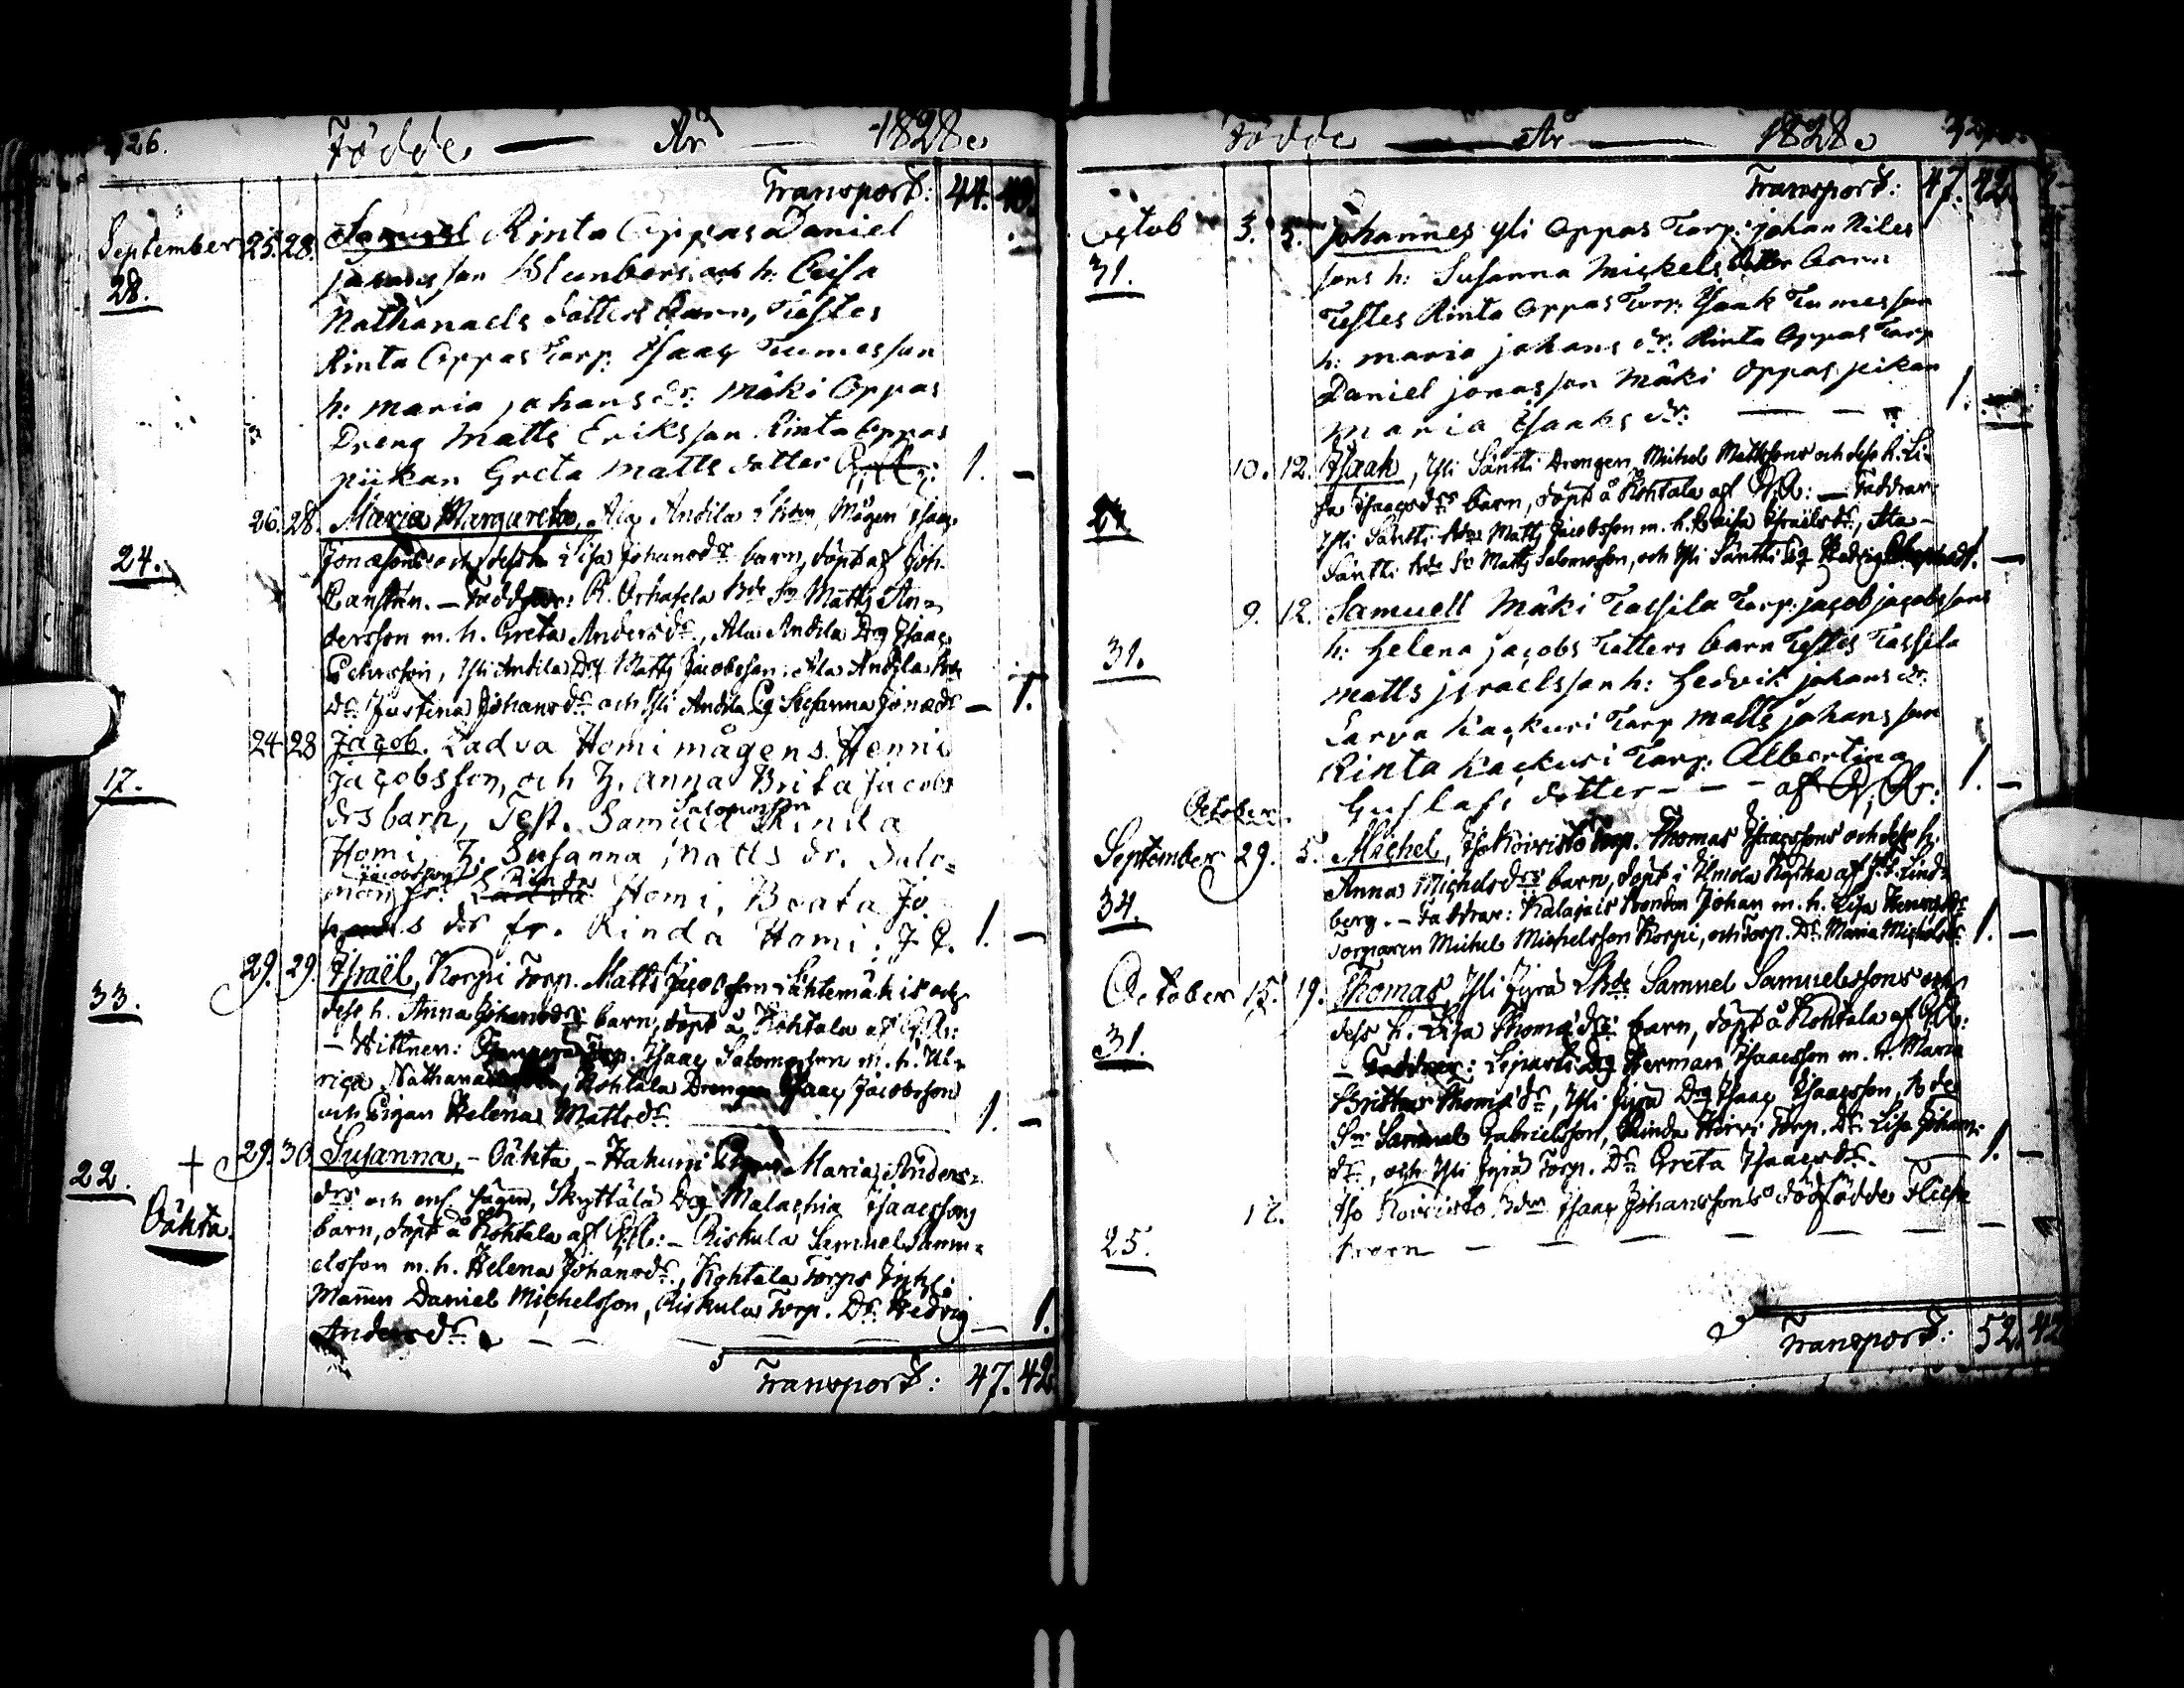 126. Födde — År — 1828.
Transport: 44. 40.
September 25. 28. Samuel Rinta Oppas Daniel
28. son och h: Caisa
Nathanaels dotters Barn, Testes
Rinta Oppas Torp: Isaac Tumasson
h: maria johans dr: Mäki Oppas
Dreng Matts Eriksson Rinta Oppas
piikan Greta Matts dotter 1. —
26. 28. Maria Margareta, Ala Andila Mågen Isaac
24. Jonæsons och dess h. Lisa Johansdrs barn, döpt af Joh.
Ranstén. — Faddrar: R. Orhatela Bde Sn Matts An-
dersson m. h. Greta Andersdr., Ala Andila Drg Isaac
Ylli Andila Drg Matts Jacobsson, Ala Andila
Dr. Justina Johansdr och Ylli Andila Pg Susanna Jonædr — 1.
24 28 Jacob. Ladva Homi mågens Henric
17. Jacobsson, och H. Anna Brita Jacobs
drs barn, Test. Samuel Salomonsson Rinda
Homi, H. Susanna Matts dr. Salo-
mon Jacobsson fr. Rinda Homi, Beata Jo-
hans dr fr. Rinda Homi. J. C. 1. —
29. 29. Israël, Korpi Torp. Matts Jacobsson Lähtemäkis och
33. dess h. Anna Johansdrs barn, döpt å Kohtala af
— Wittnen: Torp. Isaac Salomonsson m. h. Ul-
rica Kohtala Drengen Isaac Jacobsson
och Pigan Helena Mattsdr. 1. —
29. 30. Susanna, — Oähta, — Hakuni Pigans Maria Anders-
22. † drs och enl. sägen, Skyttälä Drg Malachia Isaacssons
Oähta. barn, döpt å Kohtala af — Riskula Samuel Samu-
elsson m. h. Helena Johansdr., Kohtala Torps Inhs.
Mannen Daniel Michelsson, Riskula Torp. Dr. Hedvig
Andersdr. — — — — 1.
Transport: 47. 42
Födde — År — 1828.
Transport: 47. 42
Octob 3. 5. Johannes Yli Oppas Torp: johan Niles
31. sons h: Susanna Mickels dotter barn
Testes Rinta Oppas Torp: Isaak Tumesson
h: maria johans dr: Rinta Oppas Torp
Daniel jonasson Mäki Oppas pikan
Maria Isaaks dr: — — 1. —
10. 12. Isaak, Ylli Säntti Drengen Michel Mattssons och dess h. Li-
sa Isaacsdrs barn, döpt å Kohtala af — Faddrar:
Ylli Säntti Matts Jacobsson m. h. Caisa Israelsdr., Ala-
Säntti Bde Sn Matts Salomonsson, och Ylli Säntti Pig. Hedvig —
9. 12. Samuell Mäki Tassila Torp: jacob jacobssons
31. h: Helena jacobs Totters barn Testes Tassila
matts jsraelsson h: Hedvik johans dr:
Sarva Kackuri Torp matts johansson
Rinta Kackuri Torp: Albertina
Gustafs dotter — — — af 1. —
October
September 29. 5. Michel, Iso Koivisto Torp. Thomas Isaacssons och dess h.
34. Anna Michelsdrs barn, döpt i Ilmola Kyrka af J. E. Lind-
berg. — Faddrar: Kalajais Bonden Johan m. h. Lisa
Torparen Michel Michelsson Korpi, och Torp. Dr. Maria Michelsdr. 1. —
October 15. 19. Thomas, Ylli Jyrä Samuel Samuelssons och
31. dess h. Lisa Thomædrs barn, döpt å Kohtala af
— Faddrar: Drg Herman Isaacsson m. h. Maria
Britta Thomædr., Ylli Jyrä Drg Isaac Isaacsson, Bde
Sn Samuel Gabrielsson, Rinda Hirvi Torp. Dr. Lisa Johans
dr., och Ylli Jyrä Torp. Dr. Greta Isaacsdr. — 1. —
12. Iso Koivisto Bdn Isaac Johanssons dödfödde Flicke
25. barn — — — — —
Transport: 52. 42